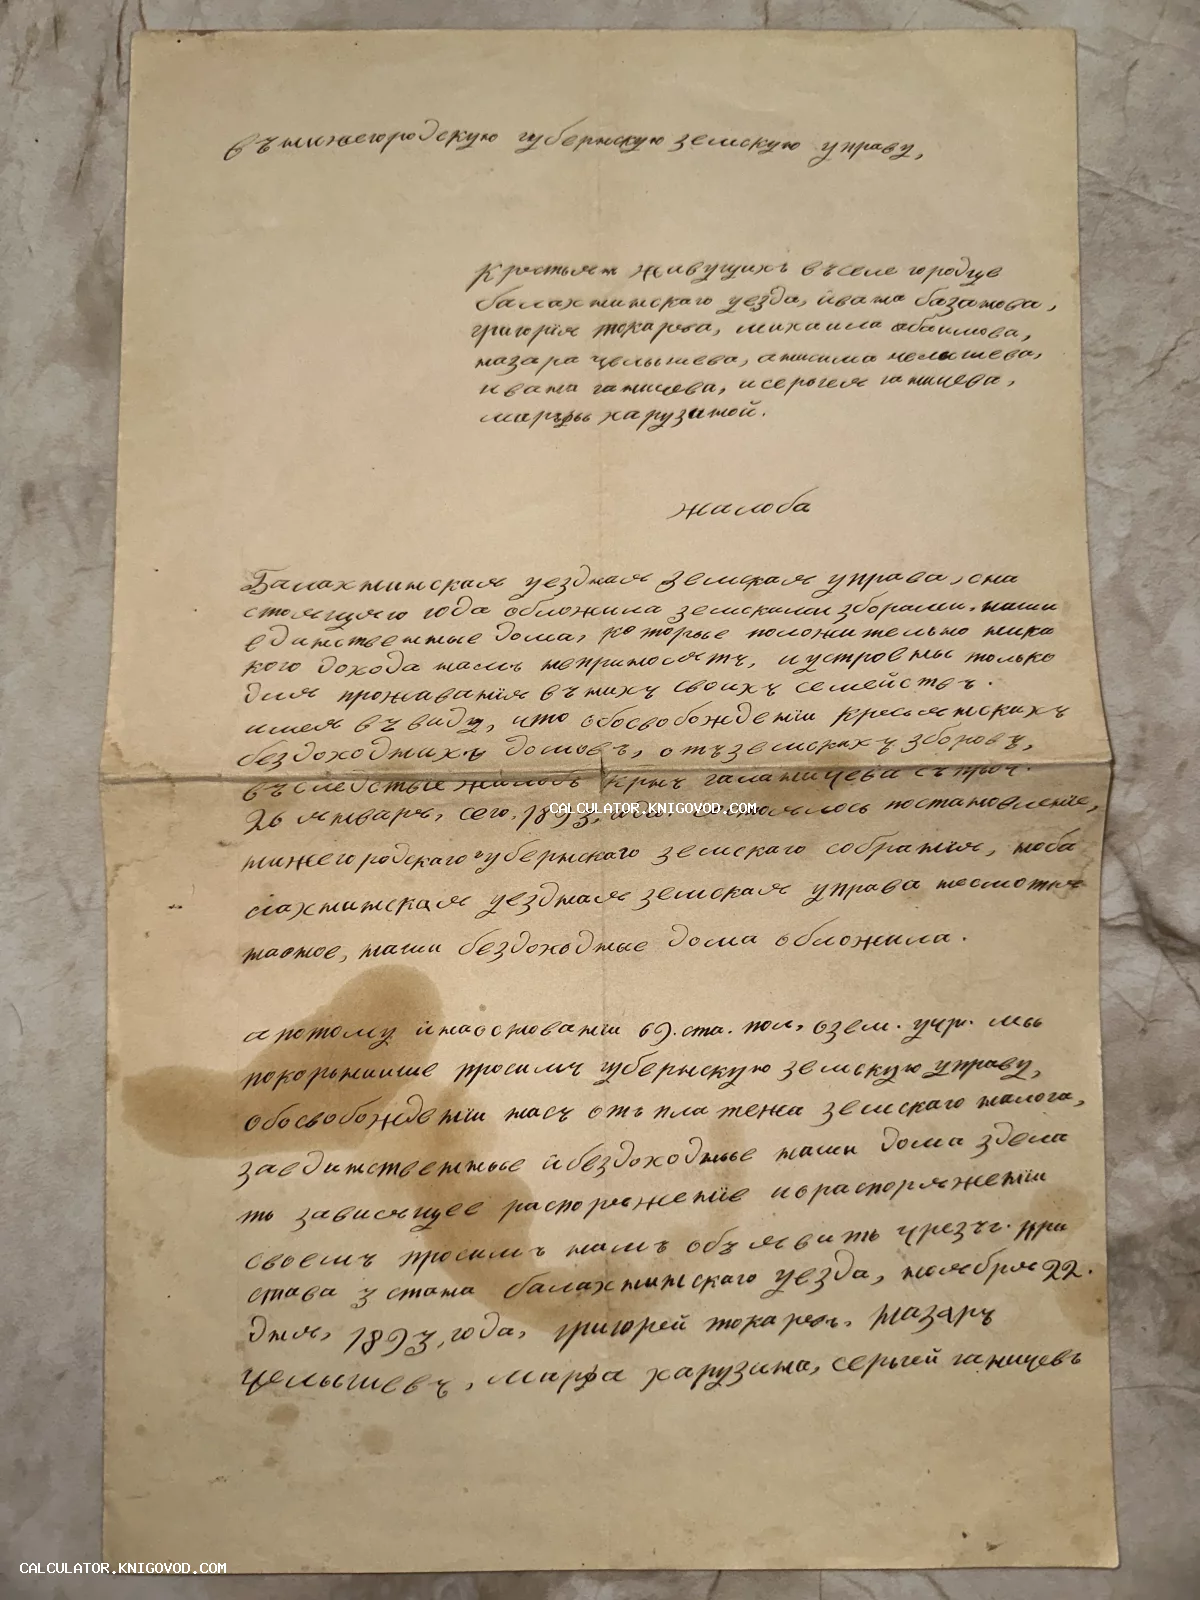 въ нижегородскую губернскую земскую управу,
крестьян живущихъ въ селе городце
балахнинскаго уезда, ивана базанова,
григорія токарева, михаила абаимова,
назара целышева, анисима челышева,
ивана ганичева, и серогея ганичева,
марфы харузиной.
жалоба
Балахнинская уездная земская управа, сна
стоящаго года обложила земскими зборами, наши
единственные дома, которые положительно ника
кого дохода намъ неприносятъ, и устроены только
для проживанія въ нихъ своихъ семействъ.
имея въ виду, что обосвобожденіи кресьянскихъ
бездоходныхъ домовъ, отъ земскихъ зборовъ,
въследствые жалобъ крнъ галаничева съ проч.
26 января, сего, 1893, года. состоялось постановленіе,
нижегородскаго губернскаго земскаго собранія, ноба
лахнинская уездная земская управа несмотря
наэтое, наши бездоходные дома обложила.
а потому и наоснованіи 69. ста. пол, озем. учр. мы
покорьнишие просимъ губернскую земскую управу,
обосвобожденіи насъ отъ платежа земскаго налога,
заединственные и бездоходные наши дома здела
ть зависящее распоряженіе и ораспоряженіи
своемъ просимъ намъ объявить чрезъ г. при
става 3 стана балахнинскаго уезда, ноября 22.
дня, 1893, года, григорей токаревъ, назаръ
целышевъ, марфа харузина, сергей ганичевъ
CALCULATOR.KNIGOVOD.COM
CALCULATOR.KNIGOVOD.COM